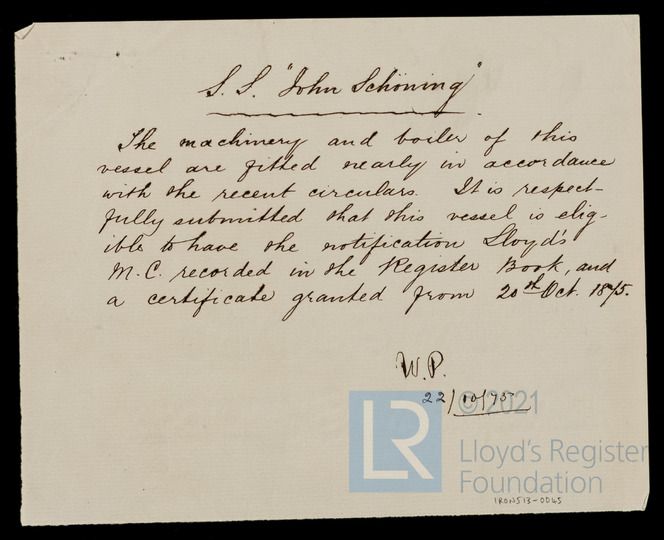 S. S. "John Schöning"
The machinery and boiler of this
vessel are fitted nearly in accordance
with the recent circulars. It is respect-
fully submitted that this vessel is elig-
ible to have the notification Lloyd's
M.C. recorded in the Register Book, and
a certificate granted from 20th Oct. 1875.
W.P.
22/10/75
© 2021
LR
Lloyd's Register
Foundation
IRON513-0065